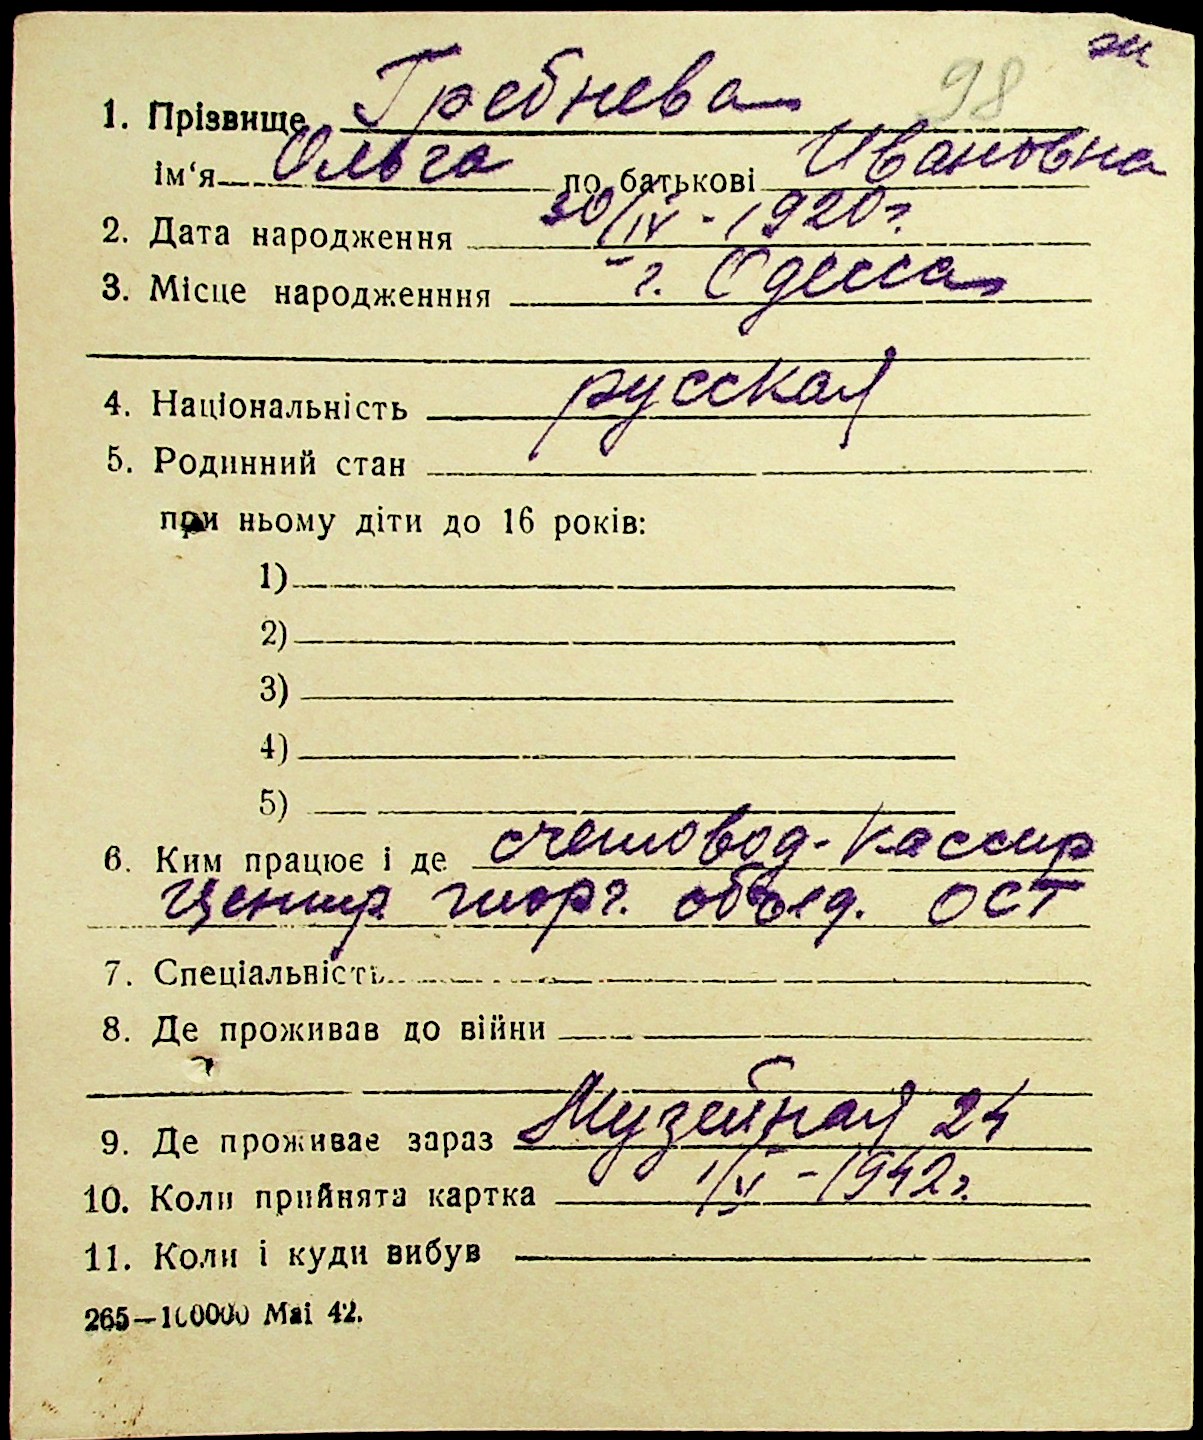 98
1. Прізвище Гребнева
ім‘я Ольга по батькові Ивановна
2. Дата народження 30/IV - 1920 г.
3. Місце народженння г. Одесса
4. Національність русская
5. Родинний стан
при ньому діти до 16 років:
1)
2)
3)
4)
5)
6. Ким працює і де счетовод-кассир
Центр. торг. объед. ОСТ
7. Спеціальність
8. Де проживав до війни
9. Де проживає зараз Музейная 24
10. Коли прийнята картка 1/V - 1942 г.
11. Коли і куди вибув
265—100000 Mai 42.